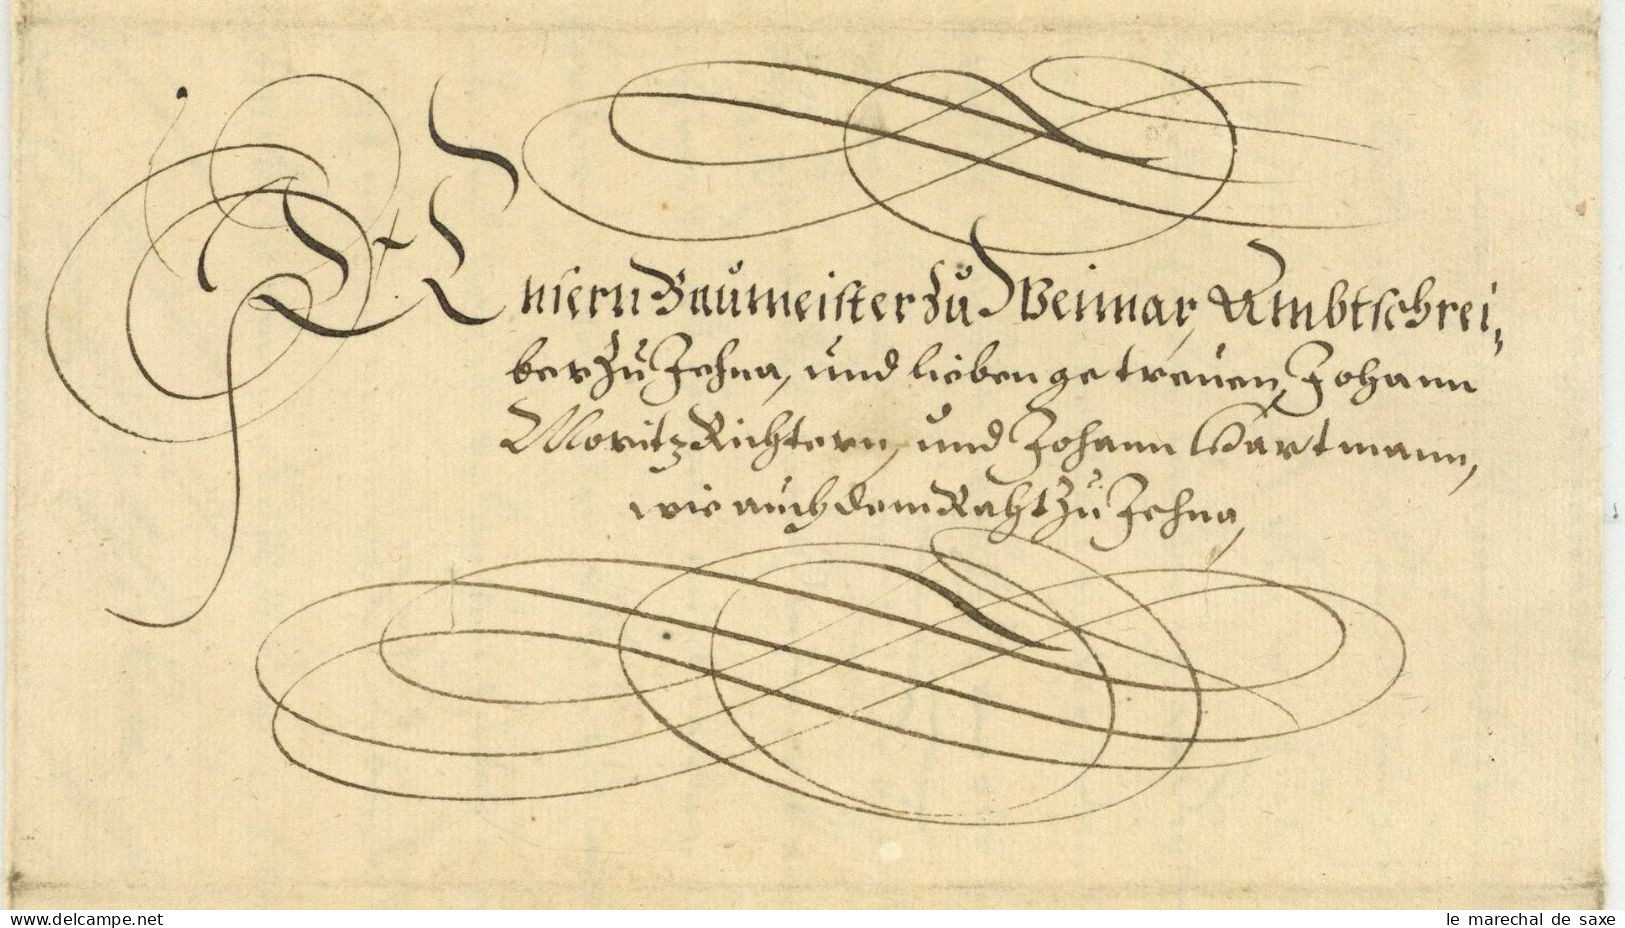 Unsern Baumeister zu Weimar, Ambtschrei,
ber zu Jehna, und lieben getreuen, Johann
Moritz Richtern, und Johann Hartmann,
wie auch dem Raht zu Jehna,
www.delcampe.net
le marechal de saxe